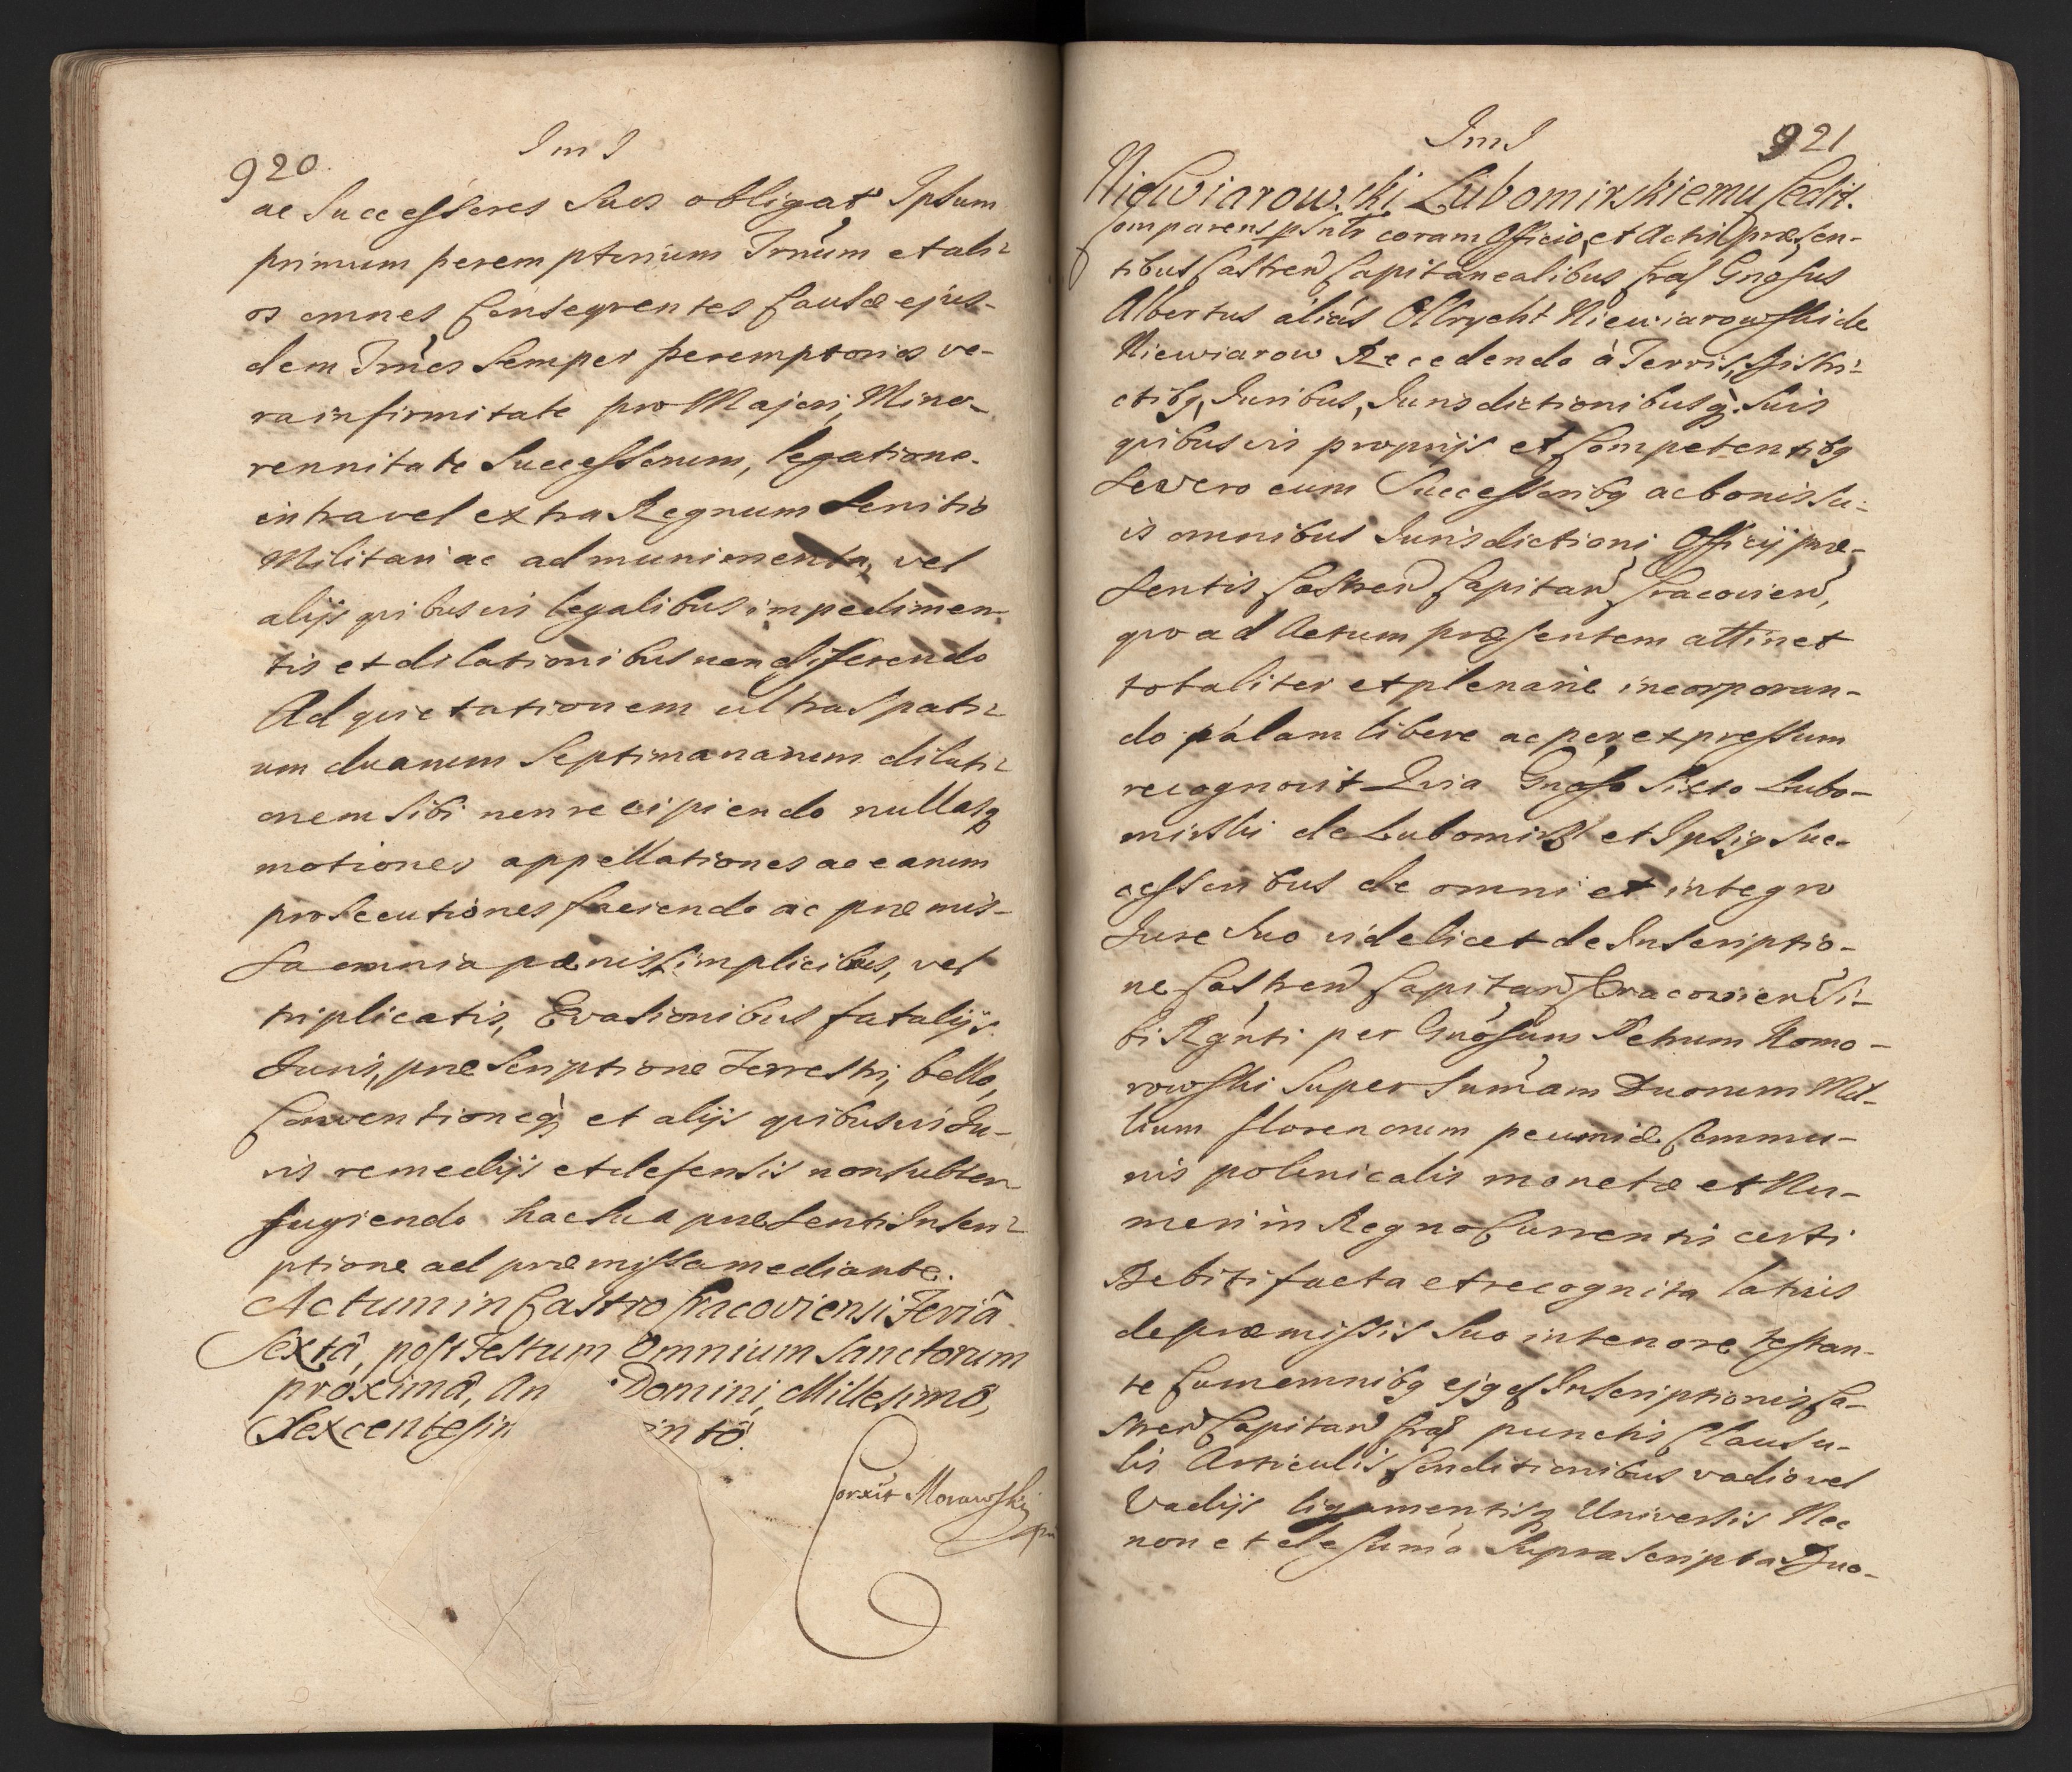 920
ImI
ac Successores Suos obligat Ipsum
primum peremptorium Trnum et ali-
os omnes Consequentes Causæ ejus-
dem Trnos Semper peremptorios ve-
ra infirmitate pro Majori, Mino-
rennitate Successorum, legatione
intra vel extra Regnum Servitio
Militari ac ad munimenta, vel
alijs quibusvis legalibus impedimen-
tis et dilationibus non differendo
Ad quietationem ultra Spati-
um duarum Septimanarum dilati-
onem Sibi non recipiendo nullasq
motiones appellationes ac earum
prosecutiones faciendo ac præmis-
sa omnia pœnis Simplicibus, vel
triplicatis, Evasionibus fatalijs
Juris, præscriptione Terrestri, bello,
Conventioneq et alijs quibusvis Ju-
ris remedijs et defensis non subter-
fugiendo hac Sua præsenti Inscri-
ptione ad præmissa mediante.
Actum in Castro Cracoviensi Feriâ
Sextâ, post Festum Omnium Sanctorum
proximâ, An Domini, Millesimô,
Sexcentesim intô.
Corxit Morawski
ImI
921
Niewiarowski Lubomirskiemu Cedit.
Comparens psntr coram Officio et Actis præsen-
tibus Castren Capitanealibus Crac Gnosus
Albertus aliàs Olbrycht Niewiarowski de
Niewiarow Recedendo à Terris, Distri-
ctibq, Juribus, Jurisdictionibusq Suis
quibusvis proprijs et Competentibq
Se vero cum Successoribq ac bonis Su-
is omnibus Jurisdictioni Officij præ-
sentis Castren Capitan Cracovien,
quo ad Actum præsentem attinet
totaliter et plenarie incorporan-
do pàlam libere ac per expressum
recognovit Quia Gnoso Sixto Lubo-
mirski de Lubomirz et Ipsiq Suc-
cessoribus de omni et integro
Jure Suo videlicet de Inscriptio-
ne Castren Capitan Cracovien Si-
bi Rgnti per Gnosum Petrum Komo-
rowski Super Sumam Duorum Mil-
lium florenorum pecuniæ Commu-
nis polonicalis monetæ et Nu-
meri in Regno Currentis certi
Debiti facta et recognita latius
de præmissis Suo in tenore testan-
te Cum omnibq ejqd Inscriptionis Ca-
stren Capitan Crac punctis Clausu-
lis Articulis Conditionibus vadio vel
Vadijs ligamentisq Universis Nec
non et de Sumâ Suprascripta Duo-